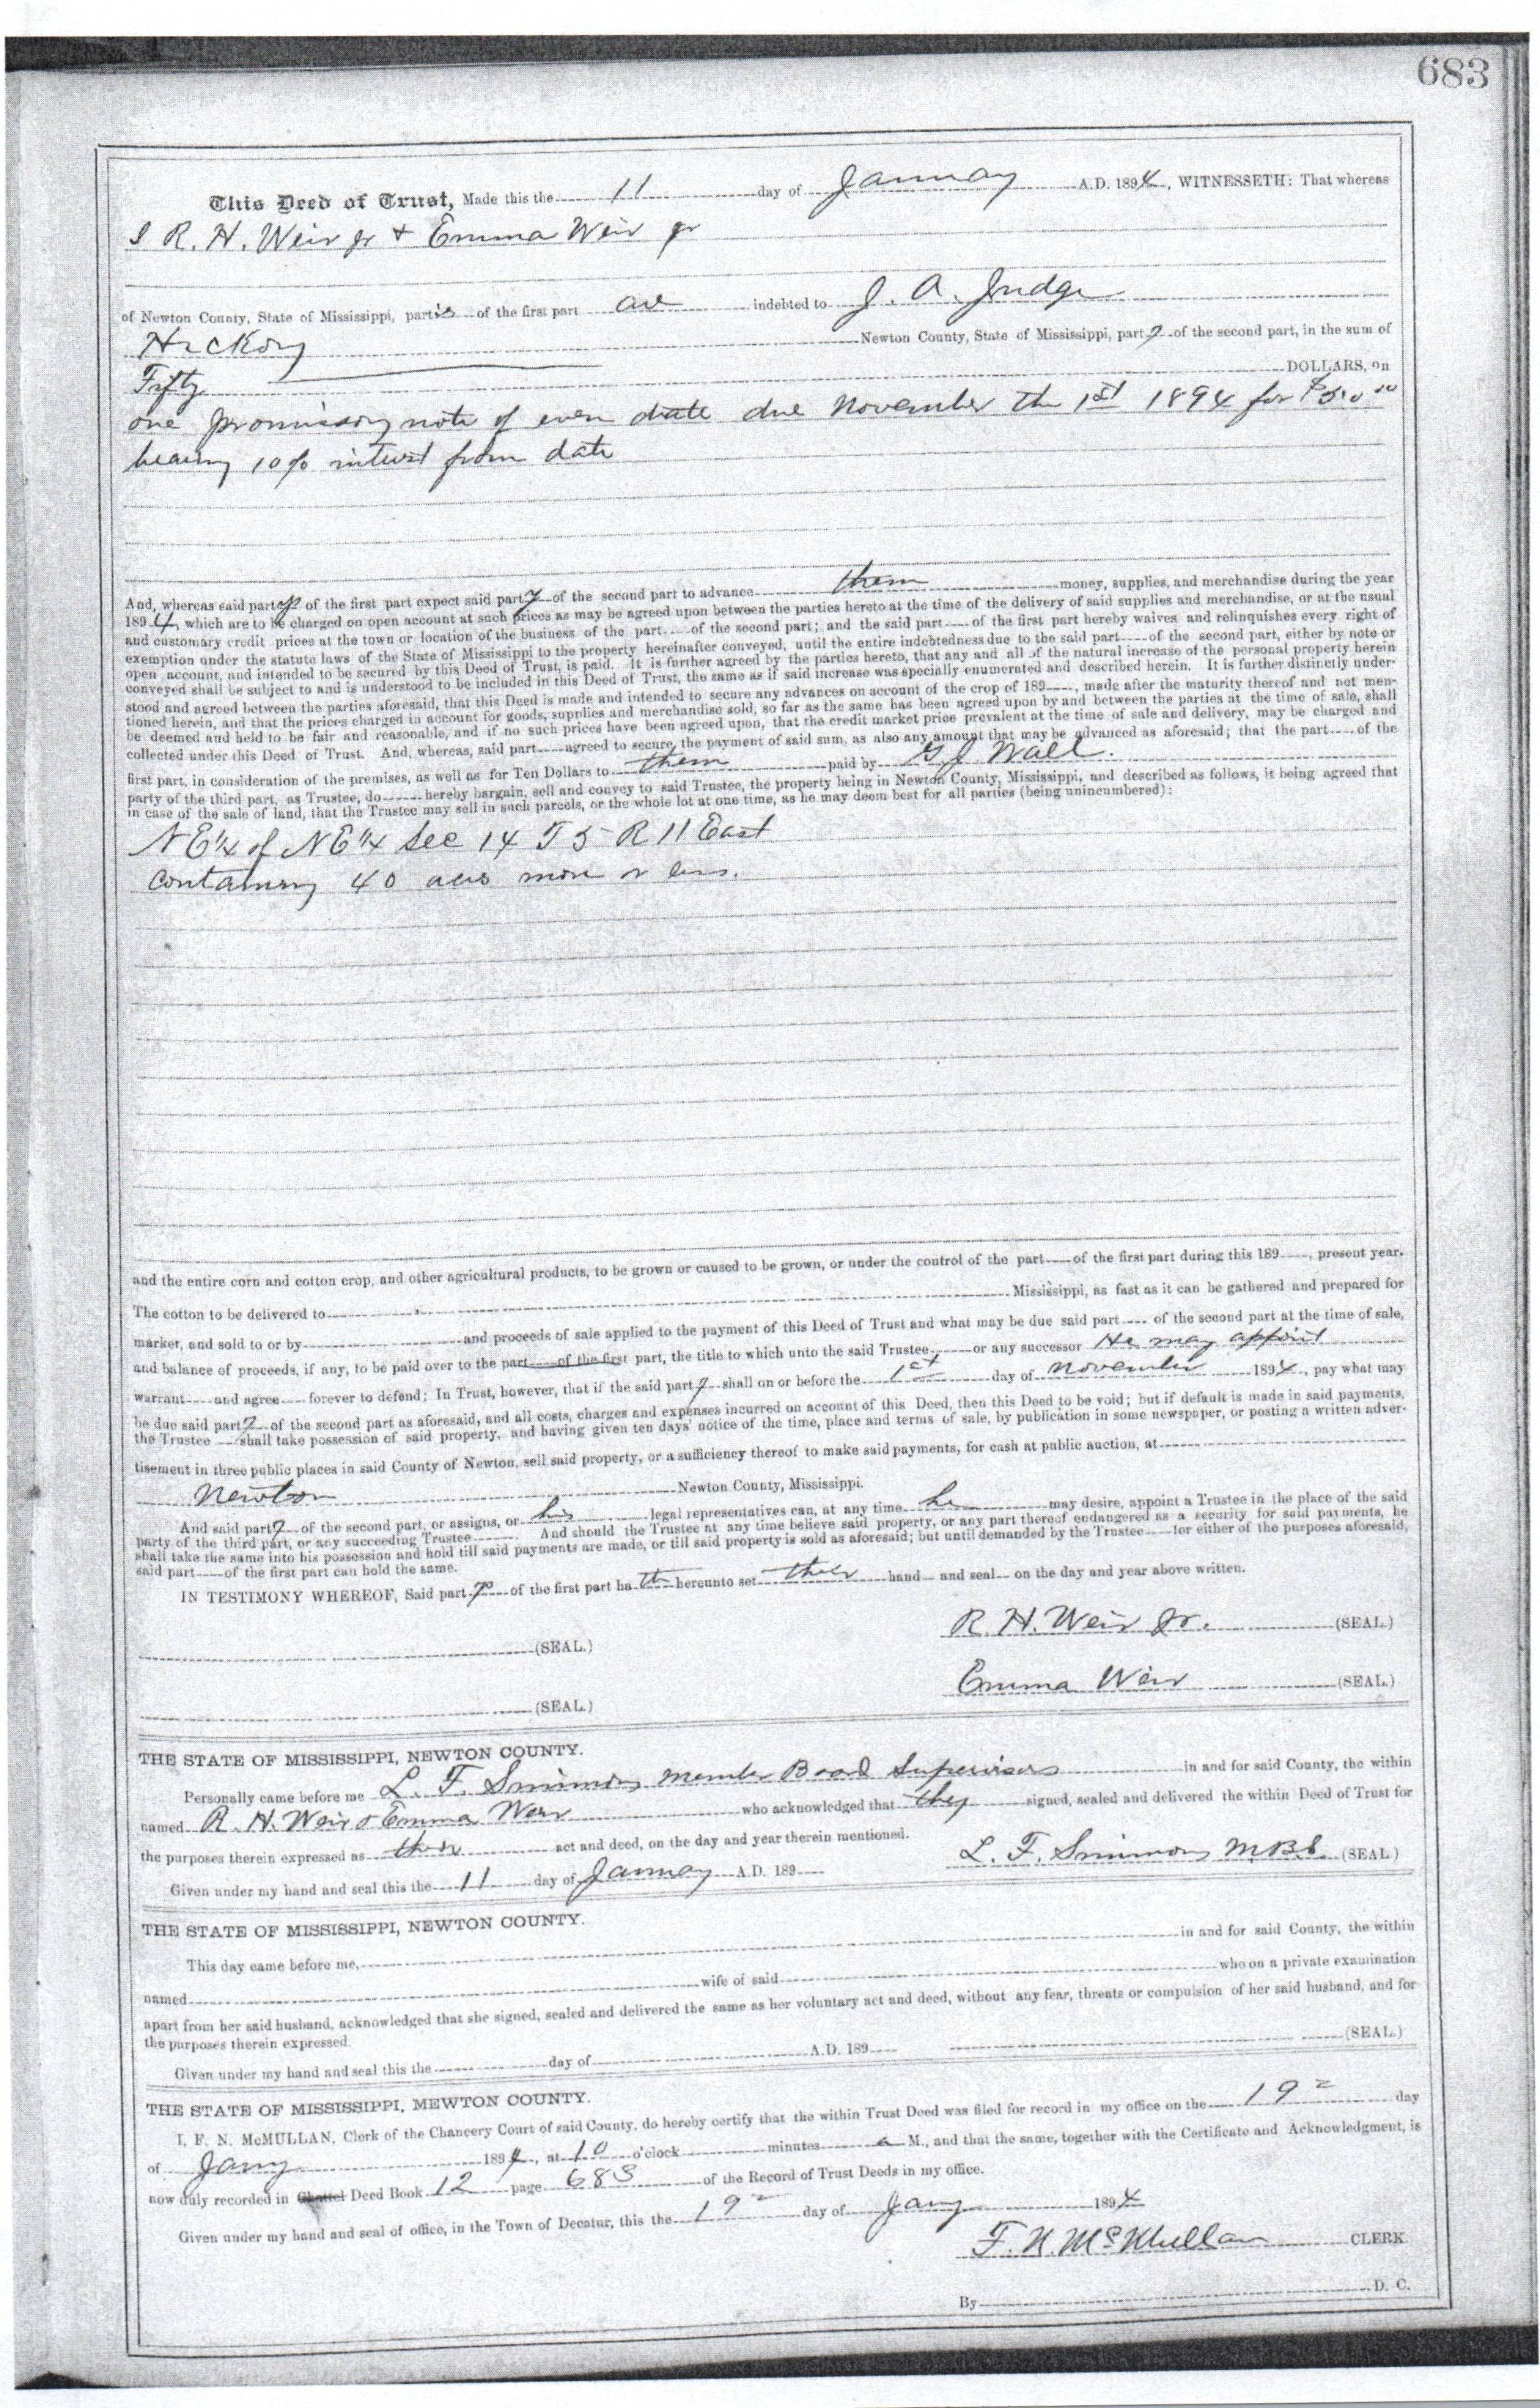 683
This Deed of Trust, Made this the 11 day of January A.D. 1894, WITNESSETH: That whereas
I R. H. Weir jr + Emma Weir jr
of Newton County, State of Mississippi, parties of the first part are indebted to J. A. Judge
Hickory Newton County, State of Mississippi, party of the second part, in the sum of
Fifty DOLLARS, on
one promissory note of even date due November the 1st 1894 for $50.00
bearing 10% interest from date
And, whereas said parties of the first part expect said party of the second part to advance them money, supplies, and merchandise during the year
1894, which are to be charged on open account at such prices as may be agreed upon between the parties hereto at the time of the delivery of said supplies and merchandise, or at the usual
and customary credit prices at the town or location of the business of the part of the second part; and the said part of the first part hereby waives and relinquishes every right of
exemption under the statute laws of the State of Mississippi to the property hereinafter conveyed, until the entire indebtedness due to the said part of the second part, either by note or
open account, and intended to be secured by this Deed of Trust, is paid. It is further agreed by the parties hereto, that any and all of the natural increase of the personal property herein
conveyed shall be subject to and is understood to be included in this Deed of Trust, the same as if said increase was specially enumerated and described herein. It is further distinctly under-
stood and agreed between the parties aforesaid, that this Deed is made and intended to secure any advances on account of the crop of 189 , made after the maturity thereof and not men-
tioned herein, and that the prices charged in account for goods, supplies and merchandise sold, so far as the same has been agreed upon by and between the parties at the time of sale, shall
be deemed and held to be fair and reasonable, and if no such prices have been agreed upon, that the credit market price prevalent at the time of sale and delivery, may be charged and
collected under this Deed of Trust. And, whereas, said part agreed to secure the payment of said sum, as also any amount that may be advanced as aforesaid; that the part of the
first part, in consideration of the premises, as well as for Ten Dollars to them paid by G J Wall.
party of the third part, as Trustee, do hereby bargain, sell and convey to said Trustee, the property being in Newton County, Mississippi, and described as follows, it being agreed that
in case of the sale of land, that the Trustee may sell in such parcels, or the whole lot at one time, as he may deem best for all parties (being unincumbered):
NE 1/4 of NE 1/4 Sec 14 T 5 R 11 East
containing 40 acres more or less.
and the entire corn and cotton crop, and other agricultural products, to be grown or caused to be grown, or under the control of the part of the first part during this 189 , present year.
The cotton to be delivered to Mississippi, as fast as it can be gathered and prepared for
marker, and sold to or by and proceeds of sale applied to the payment of this Deed of Trust and what may be due said part of the second part at the time of sale,
and balance of proceeds, if any, to be paid over to the part of the first part, the title to which unto the said Trustee or any successor He may appoint
warrant and agree forever to defend; In Trust, however, that if the said party shall on or before the 1st day of November 1894, pay what may
be due said party of the second part as aforesaid, and all costs, charges and expenses incurred on account of this Deed, then this Deed to be void; but if default is made in said payments,
the Trustee shall take possession of said property, and having given ten days' notice of the time, place and terms of sale, by publication in some newspaper, or posting a written adver-
tisement in three public places in said County of Newton, sell said property, or a sufficiency thereof to make said payments, for cash at public auction, at
Newton Newton County, Mississippi.
And said party of the second part, or assigns, or his legal representatives can, at any time he may desire, appoint a Trustee in the place of the said
party of the third part, or any succeeding Trustee And should the Trustee at any time believe said property, or any part thereof endangered as a security for said payments, he
shall take the same into his possession and hold till said payments are made, or till said property is sold as aforesaid; but until demanded by the Trustee for either of the purposes aforesaid,
said part of the first part can hold the same.
IN TESTIMONY WHEREOF, Said part of the first part hath hereunto set their hand and seal on the day and year above written.
R. H. Weir Jr. (SEAL.)
(SEAL.)
Emma Weir (SEAL.)
(SEAL.)
THE STATE OF MISSISSIPPI, NEWTON COUNTY.
Personally came before me L. F. Simmons member Board Supervisors in and for said County, the within
named R. H. Weir & Emma Weir who acknowledged that they signed, sealed and delivered the within Deed of Trust for
the purposes therein expressed as their act and deed, on the day and year therein mentioned.
Given under my hand and seal this the 11 day of January A.D. 189 L. F. Simmons M.B.S. (SEAL)
THE STATE OF MISSISSIPPI, NEWTON COUNTY.
This day came before me, in and for said County, the within
named wife of said who on a private examination
apart from her said husband, acknowledged that she signed, sealed and delivered the same as her voluntary act and deed, without any fear, threats or compulsion of her said husband, and for
the purposes therein expressed.
Given under my hand and seal this the day of A.D. 189 (SEAL.)
THE STATE OF MISSISSIPPI, MEWTON COUNTY.
I, F. N. McMULLAN, Clerk of the Chancery Court of said County, do hereby certify that the within Trust Deed was filed for record in my office on the 19 day
of Jany 1894, at 10 o'clock minutes a M., and that the same, together with the Certificate and Acknowledgment, is
now duly recorded in Chattel Deed Book 12 page 683 of the Record of Trust Deeds in my office.
Given under my hand and seal of office, in the Town of Decatur, this the 19 day of Jany 1894
F. N. McMullan CLERK.
By D. C.